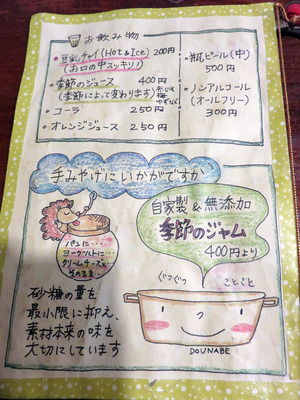 お飲み物
・豆乳チャイ(Hot&Ice) 200円
(お口の中スッキリ!)
・季節のジュース 400円
(季節によって変わります)
・コーラ 250円
・オレンジジュース 250円
・瓶ビール(中)
500円
・ノンアルコール
(オールフリー)
300円
手みやげにいかがですか
パンに…
ヨーグルトに…
クリームチーズに
そのまま…
自家製&無添加
季節のジャム
400円より
ぐつぐつ
ことこと
砂糖の量を
最小限に抑え、
素材本来の味を
大切にしています
DOUNABE